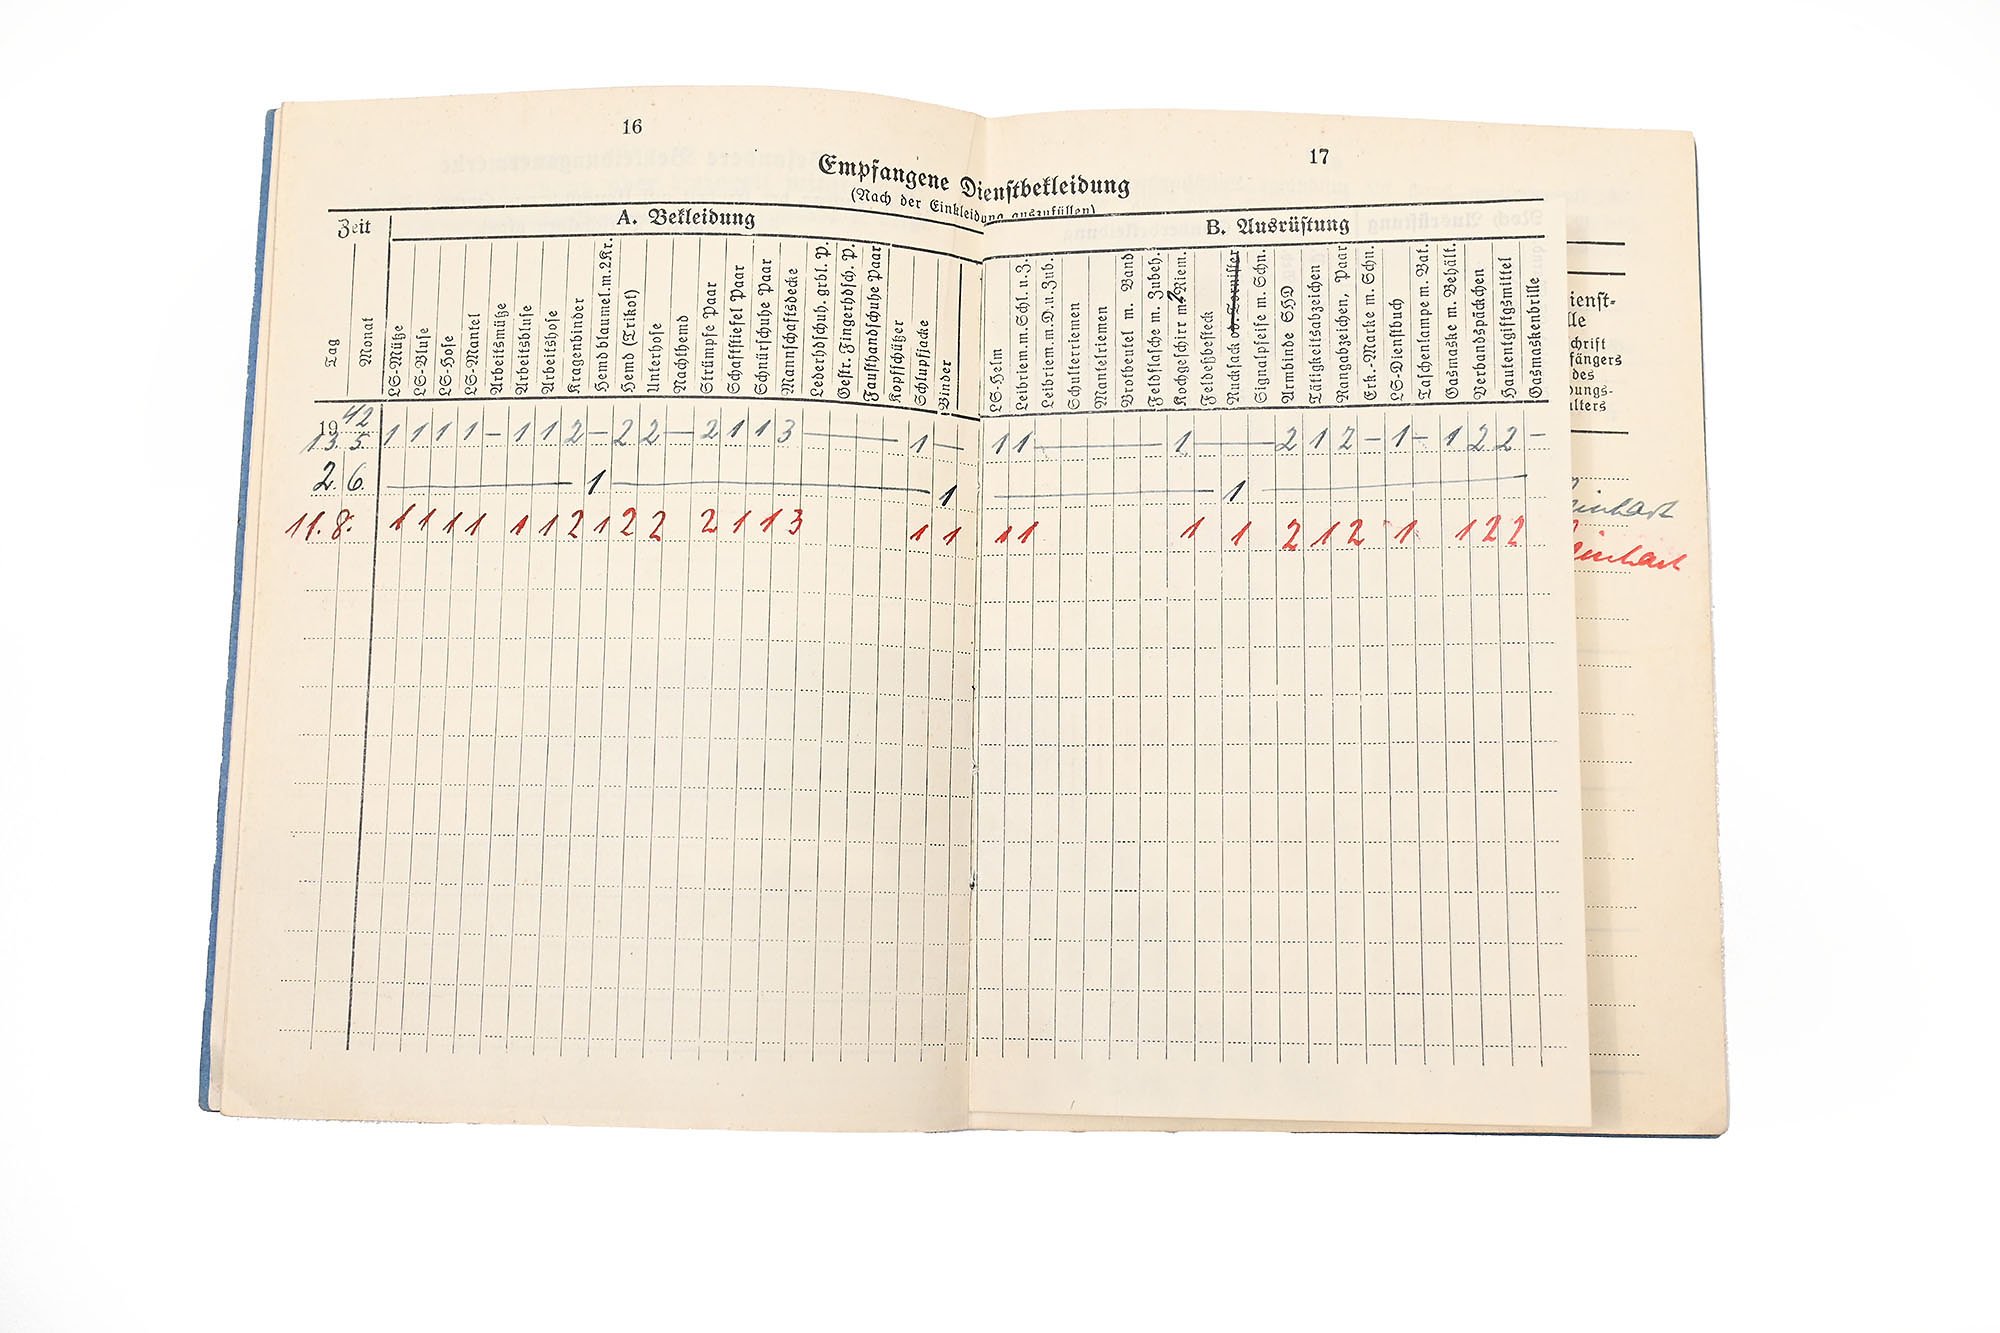 16
17
Empfangene Dienstbekleidung
(Nach der Einkleidung auszufüllen)
Zeit
A. Bekleidung
B. Ausrüstung
Tag
Monat
LS-Mütze
LS-Bluse
LS-Hose
LS-Mantel
Arbeitsmütze
Arbeitsbluse
Arbeitshose
Kragenbinder
Hemd blaumel. m. 2 Kr.
Hemd (Trikot)
Unterhose
Nachthemd
Strümpfe Paar
Schaftstiefel Paar
Schnürschuhe Paar
Mannschaftsdecke
Lederhdschuh. grbl. P.
Gestr. Fingerhdsch. P.
Fausthandschuhe Paar
Kopfschützer
Schlupfjacke
Binder
LS-Helm
Leibriem. m. Schl. u. Z.
Leibriem. m. D. u. Zub.
Schulterriemen
Mantelriemen
Brotbeutel m. Band
Feldflasche m. Zubeh.
Kochgeschirr m. 2 Riem.
Feldeßbesteck
Rucksack od. Tornister
Signalpfeife m. Schn.
Armbinde SHD
Tätigkeitsabzeichen
Rangabzeichen, Paar
Erk.-Marke m. Schn.
LS-Dienstbuch
Taschenlampe m. Bat.
Gasmaske m. Behält.
Verbandspäckchen
Hautentgiftgsmittel
Gasmaskenbrille
ienst-
lle
chrift
fängers
des
dungs-
lters
1942
13. 5. 1 1 1 1 – 1 1 2 – 2 2 – 2 1 1 3 – 1 – 1 1 – 1 – 2 1 2 – 1 – 1 2 2 –
2. 6. – 1 – 1 – 1 –
inhart
11. 8. 1 1 1 1 1 1 2 1 2 2 2 1 1 3 1 1 1 1 1 1 2 1 2 1 1 2 2
inhart